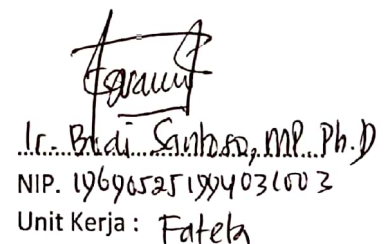 Ir. Budi Santoso, MP. Ph.D
NIP. 196905251994031003
Unit Kerja : Fateta